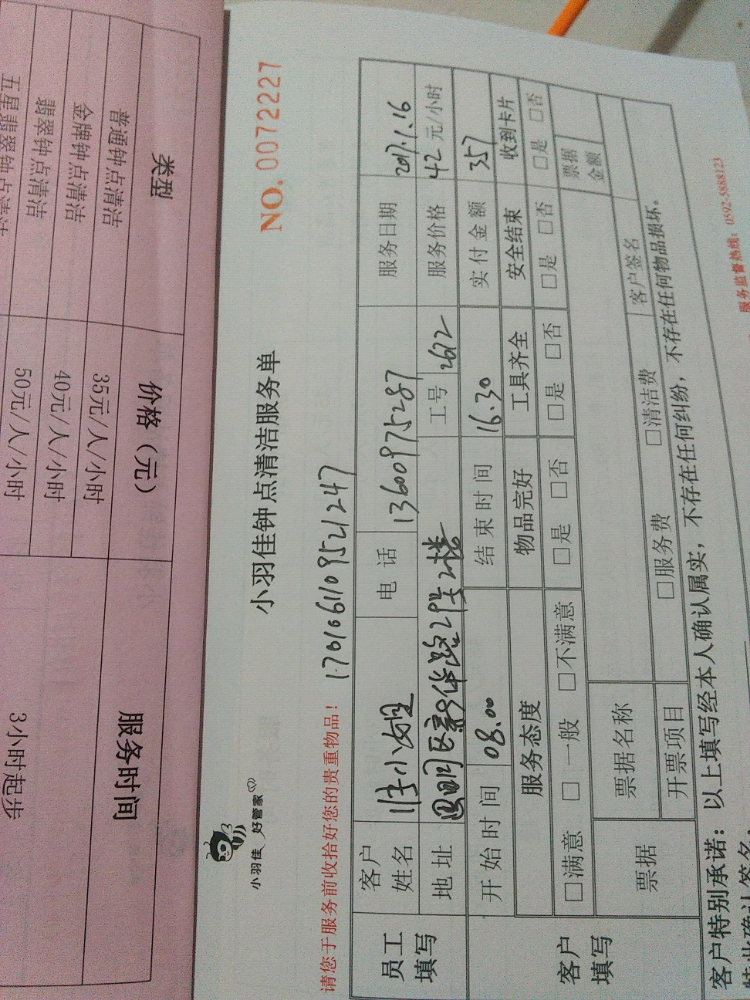 类型 价格（元） 服务时间
普通钟点清洁 35元/人/小时
金牌钟点清洁 40元/人/小时 3小时起步
翡翠钟点清洁 50元/人/小时
五星翡翠钟点清洁
NO. 0072227
小羽佳钟点清洁服务单
小羽佳 好管家
请您于服务前收拾好您的贵重物品！ 1701061109521247
员工填写
客户姓名 小姐 电话 13600975287 服务日期 2017.1.16
地址 思明区新华路29号2楼 工号 2612 服务价格 42 元/小时
开始时间 08.00 结束时间 16.30 实付金额 357
客户填写
服务态度 物品完好 工具齐全 安全结束 收到卡片
□满意 □一般 □不满意 □是 □否 □是 □否 □是 □否 □是 □否
票据 票据名称 票据金额
开票项目 □服务费 □清洁费 客户签名
客户特别承诺：以上填写经本人确认属实，不存在任何纠纷，不存在任何物品损坏。
服务监督热线：0592-5888123